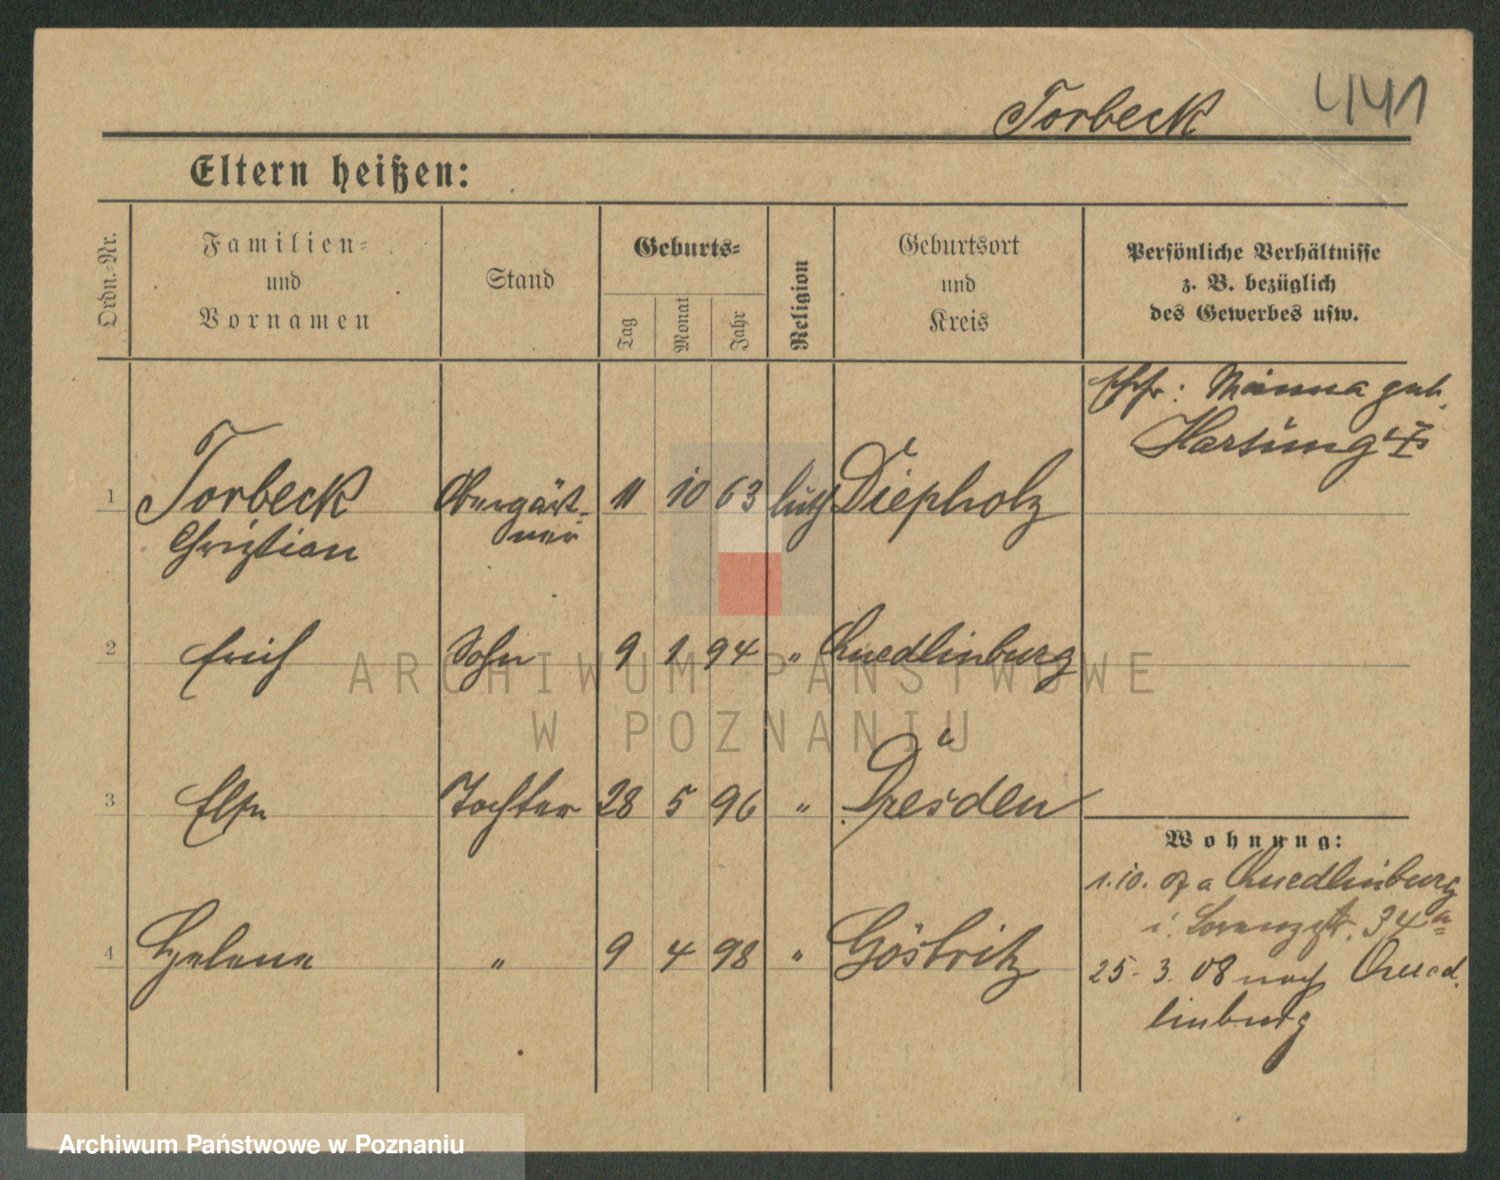 Torbeck 441
Eltern heißen:
Ordn.-Nr.
Familien-
und
Vornamen
Stand
Geburts-
Tag
Monat
Jahr
Religion
Geburtsort
und
Kreis
Persönliche Verhältnisse
z. B. bezüglich
des Gewerbes usw.
Minna geb.
Hartung
1 Torbeck Obergärt- 11 10 63 luth Diepholz
Christian ner
2 Erich Sohn 9 1 94 " Quedlinburg
3 Else Tochter 28 5 96 " Dresden
Wohnung:
1. 10. 07 a Quedlinburg
i. Lorenzstr. 34a
4 Helene " 9 4 98 " Göstritz
25. 3. 08 nach Qued
linburg
ARCHIWUM PAŃSTWOWE
W POZNANIU
Archiwum Państwowe w Poznaniu